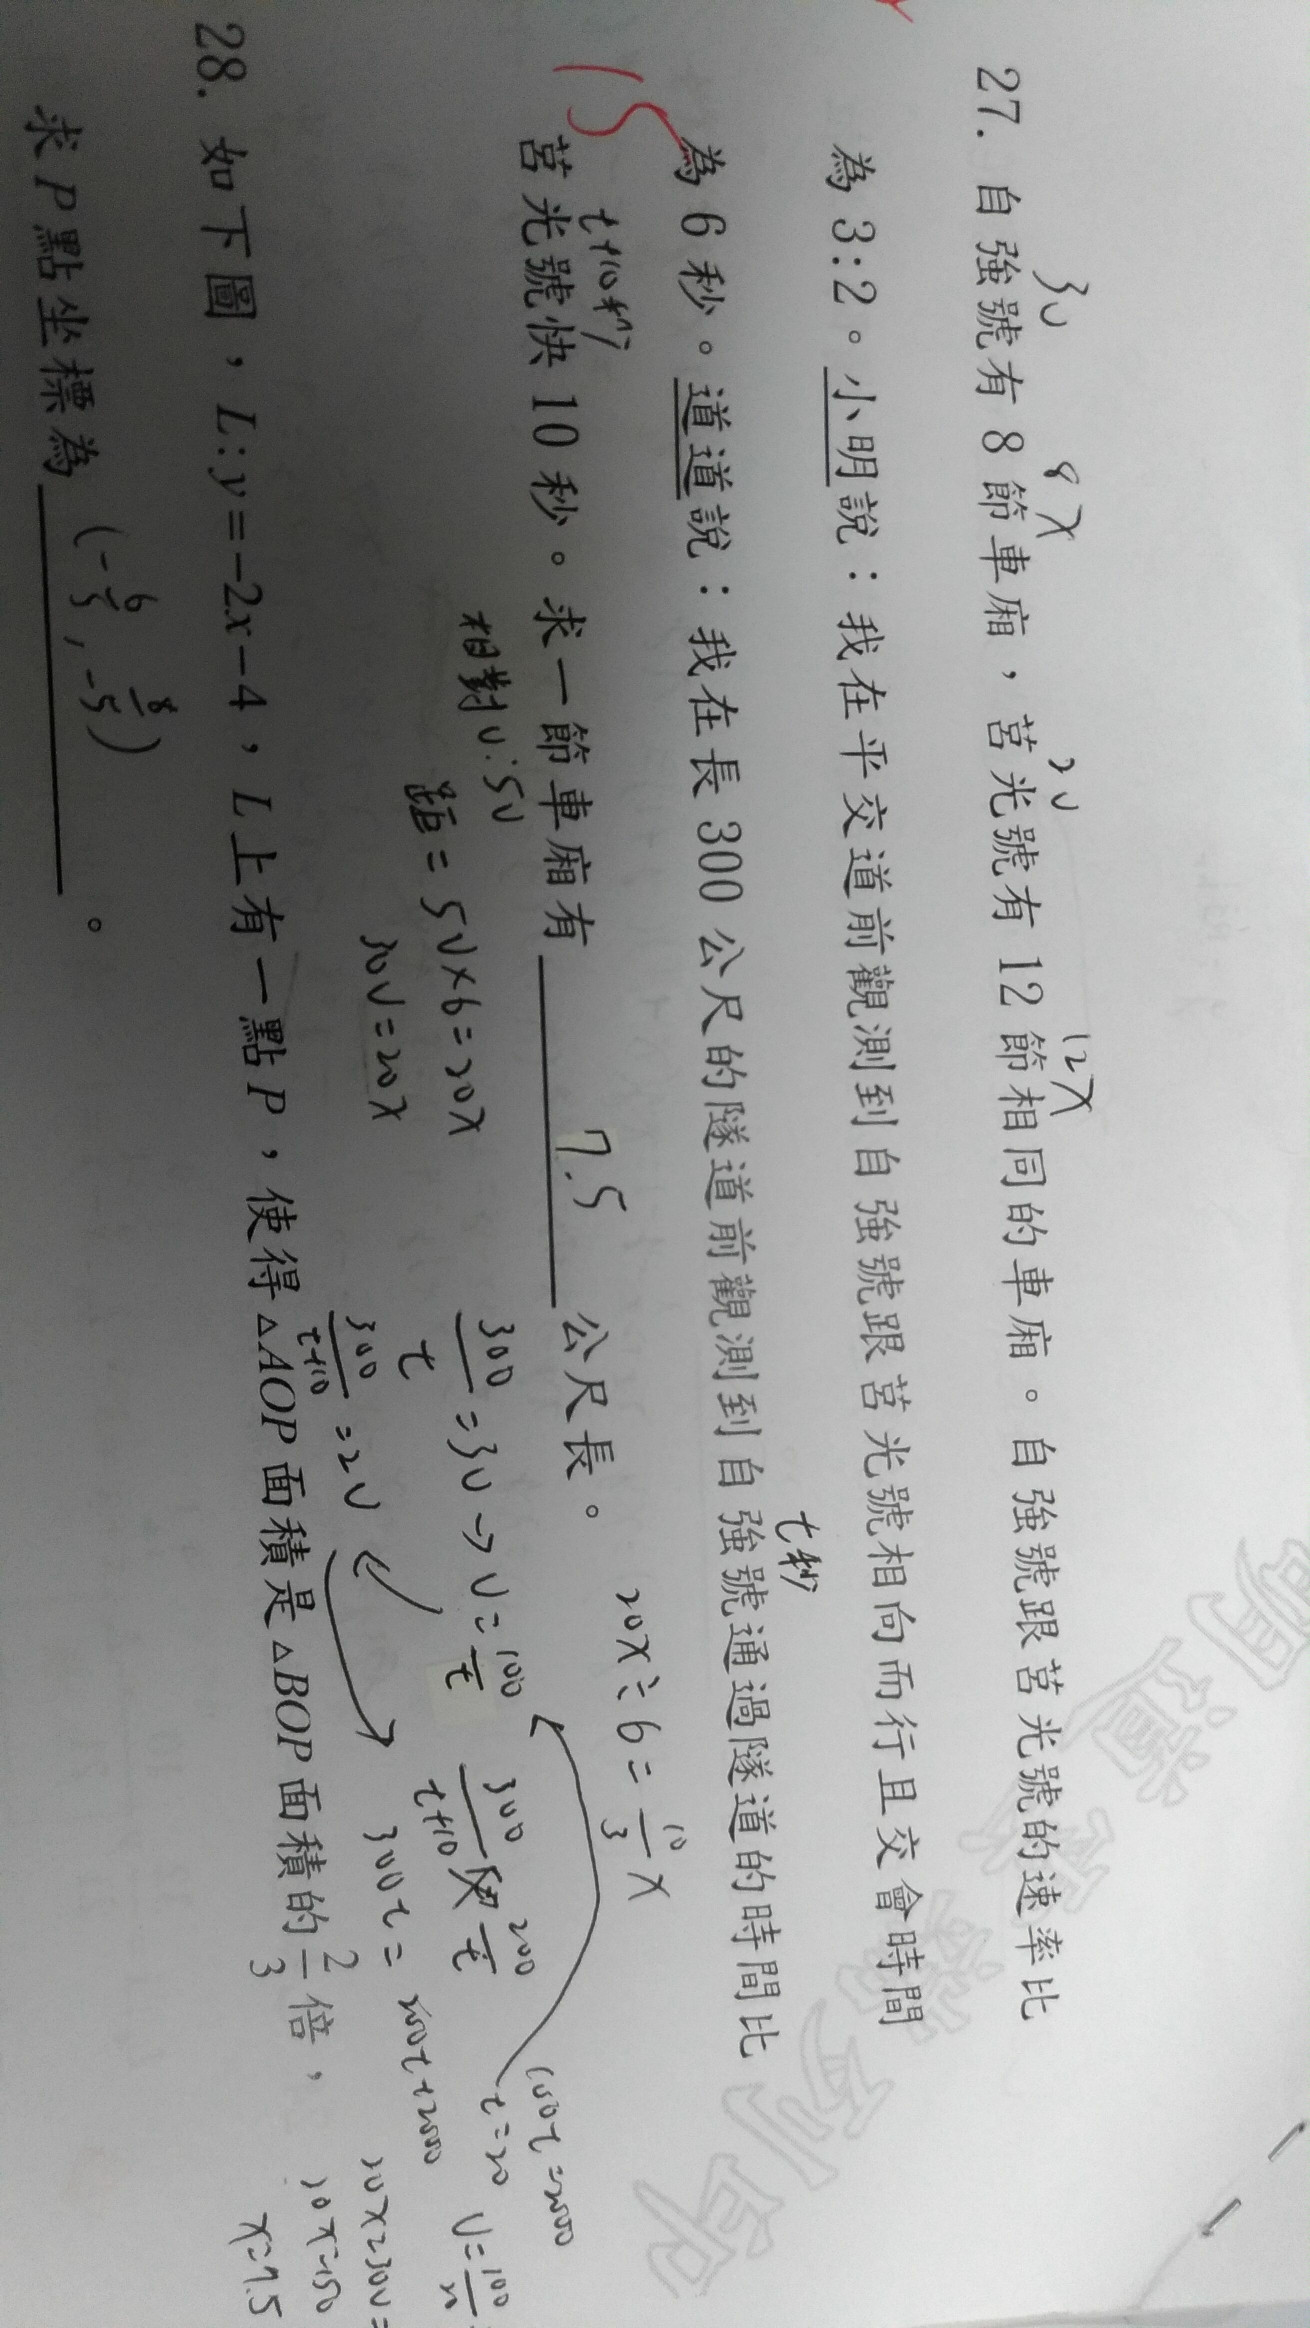 27. 自強號有 8 節車廂，莒光號有 12 節相同的車廂。自強號跟莒光號的速率比
3V
8X
2V
12X
為 3:2。小明說：我在平交道前觀測到自強號跟莒光號相向而行且交會時間
為 6 秒。道道說：我在長 300 公尺的隧道前觀測到自強號通過隧道的時間比
t秒
15
t+10秒
莒光號快 10 秒。求一節車廂有 7.5 公尺長。
20X÷6=10/3X
相對V:5V
距=5V×6=20X
30V=20X
300/t=3V→V=100/t
300/t+10=2V
300/t+10 200/t
300t=200t+2000
100t=2000
t=20
V=100/20=
20X=30V=
20X=150
X=7.5
28. 如下圖，L:y=-2x-4，L上有一點P，使得△AOP面積是△BOP面積的2/3倍，
求P點坐標為 (-6/5,-8/5) 。